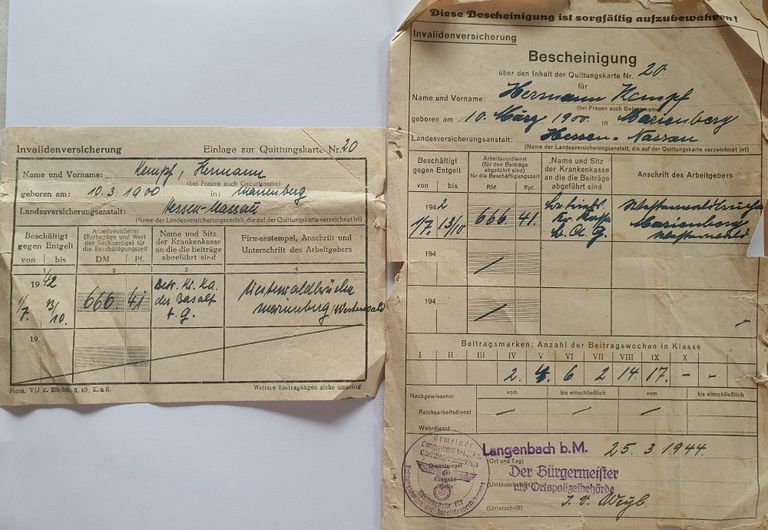 Invalidenversicherung Einlage zur Quittungskarte Nr. 20
Name und Vorname: Kempf, Hermann
(bei Frauen auch Geburtname)
geboren am 10.3.1900 in Marienberg
Landesversicherungsanstalt: Hessen-Nassau
(Name der Landesversicherungsanstalt, die auf der Quittungskarte verzeichnet ist)
Beschäftigt gegen Entgelt
von bis
Arbeitsverdienst (Barbezüge und Wert der Sachbezüge) für die Beschäftigungszeit
DM Pf.
Name und Sitz der Krankenkasse an die die Beiträge abgeführt sind
Firmenstempel, Anschrift und Unterschrift des Arbeitgebers
1 2 3 4
1942
1/7. 13/10. 666. 41. Betr. Kr. Ka. der Basalt A.G. Westerwaldbrüche Marienberg/Westerwald
19
Form. VIJ 2. 200 000, 3. 49. K. & R. Weitere Eintragungen siehe umseitig
Diese Bescheinigung ist sorgfältig aufzubewahren!
Invalidenversicherung
Bescheinigung
über den Inhalt der Quittungskarte Nr. 20
für
Name und Vorname: Hermann Kempf
(bei Frauen auch Geburtname)
geboren am 10. März 1900 in Marienberg
Landesversicherungsanstalt: Hessen-Nassau
(Name der Landesversicherungsanstalt, die auf der Quittungskarte verzeichnet ist)
Beschäftigt gegen Entgelt
von bis
Arbeitsverdienst (für den die Beiträge abgeführt sind) für die Beschäftigungszeit
RM Pf.
Name und Sitz der Krankenkasse an die die Beiträge abgeführt sind
Anschrift des Arbeitgebers
1942
1/7. 13/10 666 41. Kr. Kasse A.G. Westerwaldbrüche Marienberg Westerwald
194
194
Beitragsmarken: Anzahl der Beitragswochen in Klasse
I II III IV V VI VII VIII IX X
2. 4. 6 2 14. 17. - -
Nachgewiesene: vom bis einschließlich vom bis einschließlich
Reichsarbeitsdienst
Wehrdienst
Langenbach b.M. 25.3.1944.
(Ort und Tag)
Der Bürgermeister
als Ortspolizeibehörde
(Unterschrift)
Gemeinde
Oberwesterwaldkreis
Ausgabestelle für